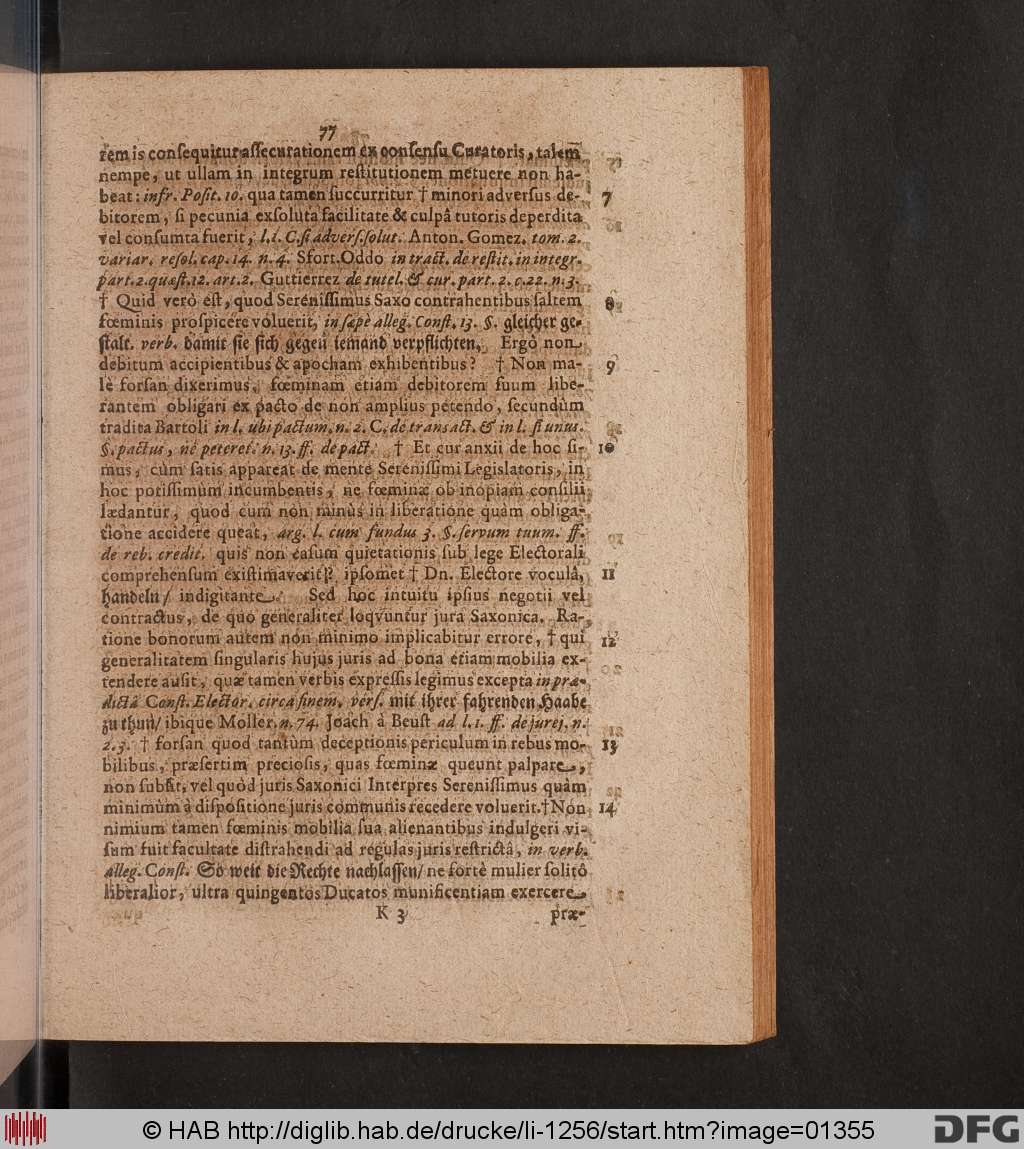 77
rem is consequitur assecurationem ex consensu Curatoris, talem
nempe, ut ullam in integrum restitutionem metuere non ha-
beat: infr. Posit. 10. qua tamen succurritur † minori adversus de- 7
bitorem, si pecunia exsoluta facilitate & culpâ tutoris deperdita
vel consumta fuerit, l.1. C. si advers. solut. Anton. Gomez. tom. 2.
variar. resol. cap. 14. n. 4. Sfort. Oddo in tract. de restit. in integr.
part. 2. quæst. 12. art. 2. Guttierrez de tutel. & cur. part. 2. c. 22. n. 3.
† Quid verò est, quod Serenissimus Saxo contrahentibus saltem 8
fœminis prospicere voluerit, in sæpè alleg. Const. 13. §. gleicher ge-
stalt. verb. damit sie sich gegen iemand verpflichten. Ergò non
debitum accipientibus & apocham exhibentibus? † Non ma- 9
lè forsan dixerimus, fœminam etiam debitorem suum libe-
rantem obligari ex pacto de non amplius petendo, secundùm
tradita Bartoli in l. ubi pactum. n. 2. C. de transact. & in l. si unus.
§. pactus, ne peteret. n. 13. ff. de pact. † Et cur anxii de hoc si- 10
mus, cùm satis appareat de mente Serenissimi Legislatoris, in
hoc potissimùm incumbentis, ne fœminæ ob inopiam consilii
lædantur, quod cum non minùs in liberatione quàm obliga-
tione accidere queat, arg. l. cum fundus 3. §. servum tuum. ff.
de reb. credit. quis non casum quietationis sub lege Electorali
comprehensum existimaverit? ipsomet † Dn. Electore voculâ, 11
handeln/ indigitante. Sed hoc intuitu ipsius negotii vel
contractus, de quo generaliter loqvuntur jura Saxonica. Ra-
tione bonorum autem non minimo implicabitur errore, † qui 12
generalitatem singularis hujus juris ad bona etiam mobilia ex-
tendere ausit, quæ tamen verbis expressis legimus excepta in præ-
dictâ Const. Elector. circa finem. vers. mit ihrer fahrenden Haabe
zu thun/ ibique Moller. n. 74. Joach à Beust ad l. 1. ff. de jurej. n.
2. 3. † forsan quod tantùm deceptionis periculum in rebus mo- 13
bilibus, præsertim preciosis, quas fœminæ queunt palpare,
non subsit, vel quòd juris Saxonici Interpres Serenissimus quàm
minimùm à dispositione juris communis recedere voluerit. † Non 14
nimium tamen fœminis mobilia sua alienantibus indulgeri vi-
sum fuit facultate distrahendi ad regulas juris restrictâ, in verb.
alleg. Const. So weit die Rechte nachlassen/ ne fortè mulier solitô
liberalior, ultra quingentos Ducatos munificentiam exercere
K 3 præ-
© HAB http://diglib.hab.de/drucke/li-1256/start.htm?image=01355
DFG